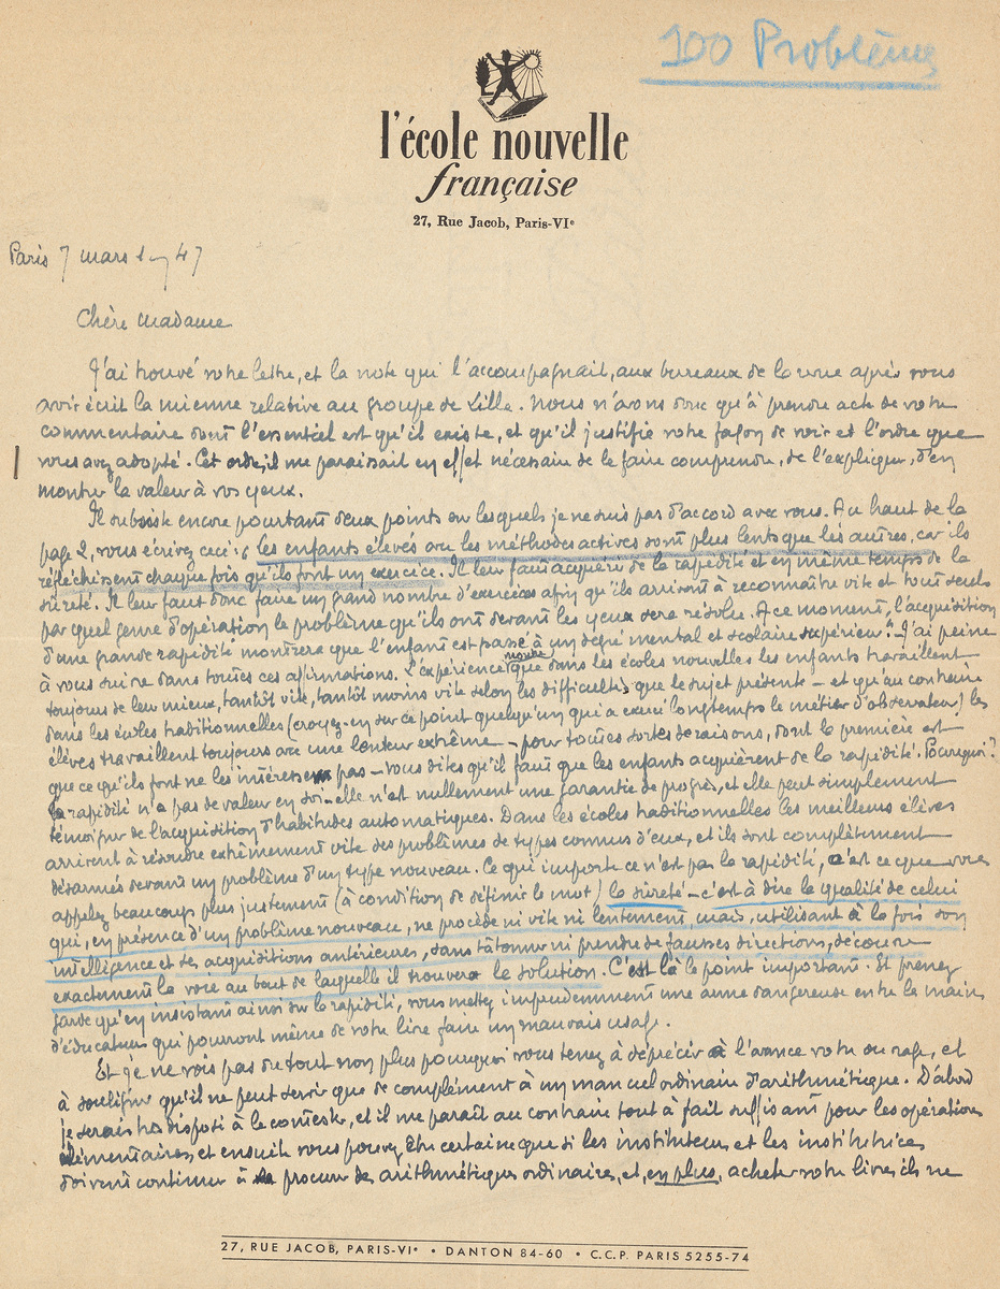 100 Problèmes
l'école nouvelle
française
27, Rue Jacob, Paris-VIe
Paris 7 mars 47
Chère Madame
J'ai trouvé votre lettre, et la note qui l'accompagnait, aux bureaux de la revue après vous
avoir écrit la mienne relative au groupe de Lille. Nous n'avons donc qu'à prendre acte de votre
commentaire dont l'essentiel est qu'il existe, et qu'il justifie votre façon de voir et l'ordre que
vous avez adopté. Cet ordre, il me paraissait en effet nécessaire de le faire comprendre, de l'expliquer, d'en
montrer la valeur à vos yeux.
Il subsiste encore pourtant deux points sur lesquels je ne suis pas d'accord avec vous. Au haut de la
page 2, vous écrivez ceci : "les enfants élevés avec les méthodes actives sont plus lents que les autres, car ils
réfléchissent chaque fois qu'ils font un exercice. Il leur faut acquérir de la rapidité et en même temps de la
sûreté. Il leur faut donc faire un grand nombre d'exercices afin qu'ils arrivent à reconnaître vite et tout seuls
par quel genre d'opération le problème qu'ils ont devant les yeux sera résolu. A ce moment, l'acquisition
d'une grande rapidité montrera que l'enfant est passé à un degré mental et scolaire supérieur." J'ai peine
à vous suivre dans toutes ces affirmations. L'expérience montre que dans les écoles nouvelles les enfants travaillent
toujours de leur mieux, tantôt vite, tantôt moins vite selon les difficultés que le sujet présente - et qu'au contraire
dans les écoles traditionnelles (croyez-en sur ce point quelqu'un qui a exercé longtemps le métier d'observateur) les
élèves travaillent toujours avec une lenteur extrême - pour toutes sortes de raisons, dont la première est
que ce qu'ils font ne les intéresse pas - vous dites qu'il faut que les enfants acquièrent de la rapidité. Pourquoi?
la rapidité n'a pas de valeur en soi - elle n'est nullement une garantie de progrès, et elle peut simplement
témoigner de l'acquisition d'habitudes automatiques. Dans les écoles traditionnelles les meilleurs élèves
arrivent à résoudre extrêmement vite des problèmes de types connus d'eux, et ils sont complètement
désarmés devant un problème d'un type nouveau. Ce qui importe ce n'est pas la rapidité, c'est ce que vous
appelez beaucoup plus justement (à condition de définir le mot) la sûreté - c'est à dire la qualité de celui
qui, en présence d'un problème nouveau, ne procède ni vite ni lentement, mais, utilisant à la fois son
intelligence et ses acquisitions antérieures, sans tâtonner ni prendre de fausses directions, découvre
exactement la voie au bout de laquelle il trouvera la solution. C'est là le point important. Et prenez
garde qu'en insistant ainsi sur la rapidité, vous mettez imprudemment une arme dangereuse entre les mains
d'éducateurs qui pourront même de votre livre faire un mauvais usage.
Et je ne vois pas du tout non plus pourquoi vous tenez à déprécier à l'avance votre ouvrage, et
à souligner qu'il ne peut servir que de complément à un manuel ordinaire d'arithmétique. D'abord
je serais très disposé à le contester, et il me paraît au contraire tout à fait suffisant pour les opérations
élémentaires, et ensuite vous pouvez être certaine que si les instituteurs et les institutrices
doivent continuer à se procurer des arithmétiques ordinaires, et, en plus, acheter votre livre, ils ne
27, RUE JACOB, PARIS-VIe • DANTON 84-60 • C.C.P. PARIS 5255-74